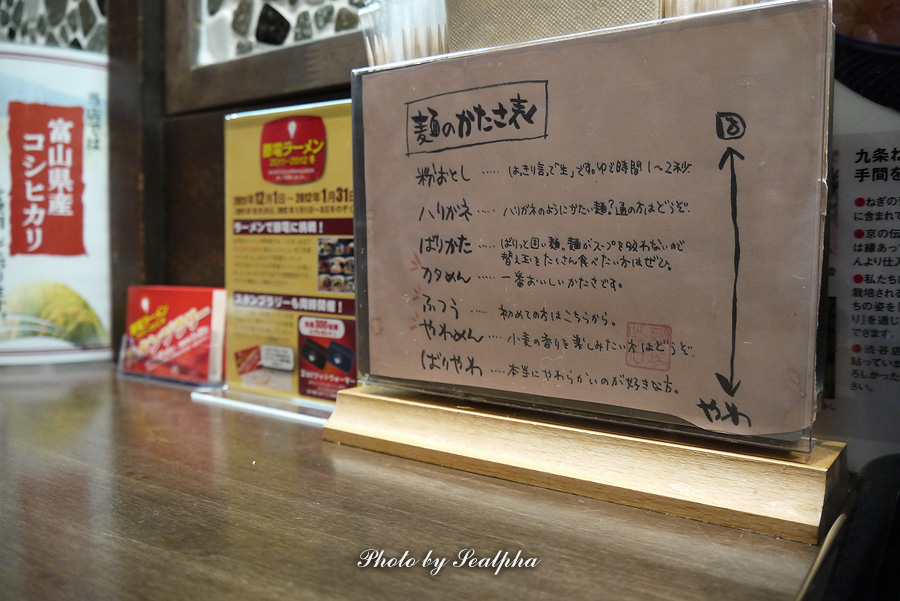 当店では
富山県産
コシヒカリ
節電ラーメン
2011~2012冬
2011年12月1日~2012年1月31日
ラーメンで節電に挑戦!
スタンプラリーも同時開催!
先着300名様
麺のかたさ表
固
粉おとし ・・・・・ はっきり言って「生」です。ゆで時間1~2秒。
ハリガネ ・・・・・ ハリガネのようにかたい麺?通の方はどうぞ。
ばりかた ・・・・・ ばりっと固い麺。麺がスープを吸わないので
替え玉をたくさん食べたい方はぜひ。
カタめん ・・・・・ 一番おいしいかたさです。
ふつう ・・・・・ 初めての方はこちらから。
やわめん ・・・・・ 小麦の香りを楽しみたい方はどうぞ。
ばりやわ ・・・・・ 本当にやわらかいのが好きな方。
やわ
九条ね
手間を
●ねぎの
に含まれて
●京の伝
は縁あっ
んより仕入
●私たち
栽培される
ちの姿を
り』を通じ
できます。
●渋谷店
貼ってい
ろしかった
さい。
Photo by Sealpha